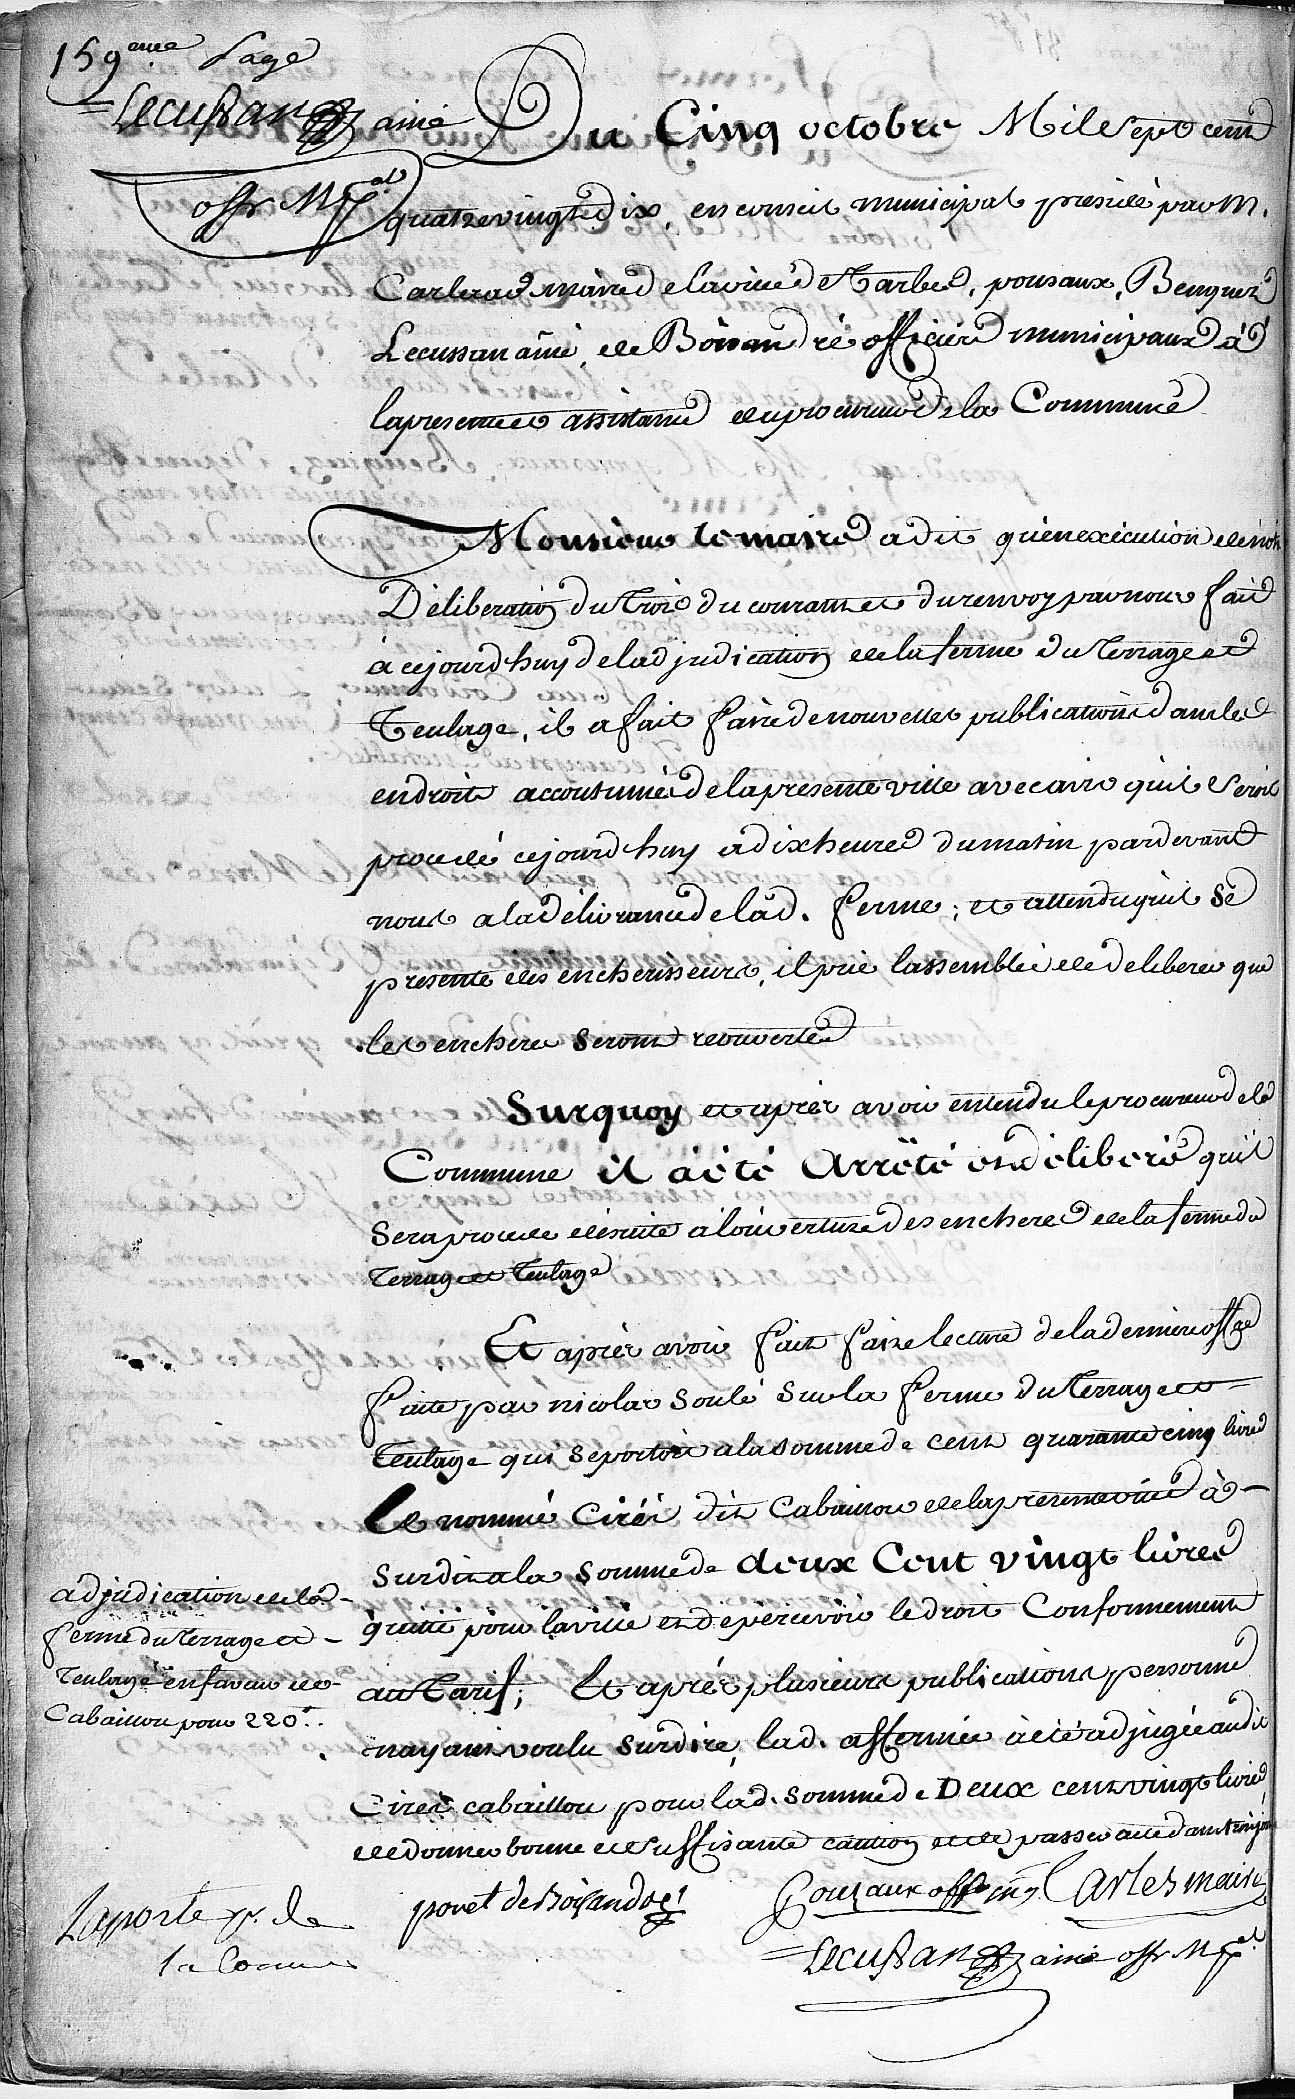 159eme Page
Lecussan ainé
offr Mpal
Du Cinq octobre Mil sept cent
quatrevingt dix, en conseil municipal presidé par M.
Carles maire de la ville de Tarbes, pouzaux, Benquez
Lecussan ainé, de Boisandré officiers municipaux à
la presence et assistance du procureur de la Commune
Monsieur le maire a dit qu'en execution de notre
Déliberation du trois du courant et du renvoy par nous fait
à cejourd'huy de ladjudication de la ferme du Terrage et
Teulage, il a fait faire de nouvelles publications dans les
endroits accoutumées de la presente ville avec avis qu'il seroit
procédé cejourd'huy à dix heures du matin pardevant
nous a la délivrance de lad. ferme; et attendu qu'il se
presente des encherisseurs, il prie l'assemblée de deliberer que
les encheres seront reouvertes
Surquoy et après avoir entendu le procureur de la
Commune il a été Arrêté et déliberé qu'il
sera procedé de suite à l'ouverture des encheres de la ferme du
Terrage et Teulage
Et après avoir fait faire lecture de la derniere offre
faite par nicolas Soulé sur la ferme du Terrage et
Teulage qui se portoit a la somme de cent quarante cinq livres
Le nommé Cirés dit Cabaillou de la presente ville à
surdit a la somme de deux Cent vingt livres
quitte pour la ville et de percevoir le droit Conformement
au Tarif; Et après plusieurs publications personne
nayant voulu surdire, lad. afferme à été adjugée audit
Cirés cabaillou pour lad. somme de Deux cent vingt livres
de donner bonne et suffisante caution et de passer acte dans trois jours
adjudication de la
ferme du Terrage et
Teulage en faveur de
Cabaillou pour 220 tt.
Laporte pr. de
la Commune
poret de Boisandré
Pouzaux off. mpal
Carles maire
Lecussan ainé offr Mpal